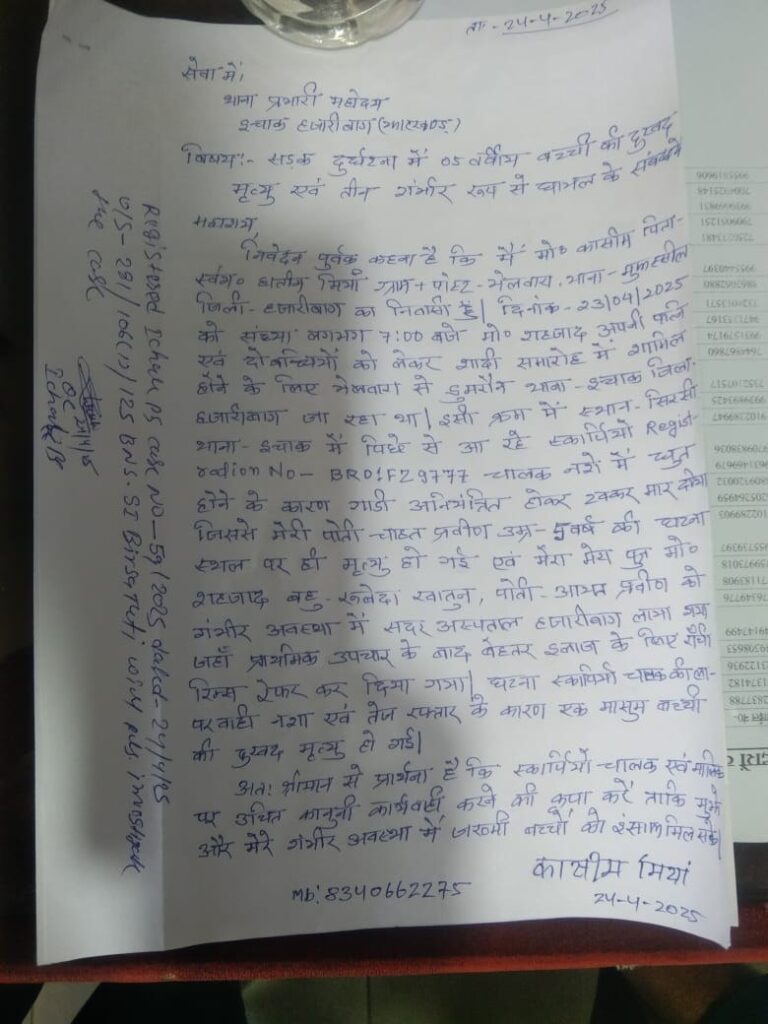 ता:- 24-4-2025
सेवा में,
थाना प्रभारी महोदय
इचाक हजारीबाग (झारखण्ड)
विषय:- सड़क दुर्घटना में 05 वर्षीय बच्ची की दुखद
मृत्यु एवं तीन गंभीर रूप से घायल के संबंध में
महाशय,
निवेदन पूर्वक कहना है कि मैं मो० कासीम पिता-
स्व० हालीम मियाँ ग्राम + पोस्ट - भेलवारा, थाना - मुफ्फसील
जिला- हजारीबाग का निवासी हूँ। दिनांक - 23/04/2025
को संध्या लगभग 7:00 बजे मो० शहजाद अपनी पत्नी
एवं दो बच्चियों को लेकर शादी समारोह में शामिल
होने के लिए भेलवारा से डुमरौन थाना - इचाक जिला-
हजारीबाग जा रहा था। इसी क्रम में स्थान - सिरसी
थाना - इचाक में पिछे से आ रहे स्कार्पियो Regist-
ration No - BR01FZ9777 चालक नशे में च्युत
होने के कारण गाडी अनियंत्रित होकर टक्कर मार दीया
जिससे मेरी पोती चाहत प्रवीण उम्र - 5 वर्ष की घटना
स्थल पर ही मृत्यु हो गई एवं मेरा मेरा पुत्र मो०
शहजाद बहु - रूबेदा खातुन, पोती - आयत प्रवीण को
गंभीर अवस्था में सदर अस्पताल हजारीबाग लाया गया
जहाँ प्राथमिक उपचार के बाद बेहतर इलाज के लिए राँची
रिम्स रेफर कर दिया गया। घटना स्कार्पियो चालक की ला-
परवाही नशा एवं तेज रफ्तार के कारण एक मासुम बच्ची
की दुखद मृत्यु हो गई।
अतः श्रीमान से प्रार्थना है कि स्कार्पियो चालक एवं मालिक
पर उचित कानुनी कार्यवाही करने की कृपा करें ताकि मुझे
और मेरे गंभीर अवस्था में जख्मी बच्चों को इंसाफ मिल सके।
कासीम मियां
24-4-2025
Mb: 8340662275
Registered Ichak PS case NO - 59/2025 dated - 24/4/25
U/S - 281/106(1)/125 BNS. SI will pls investigate
the case
OC
Ichak PS